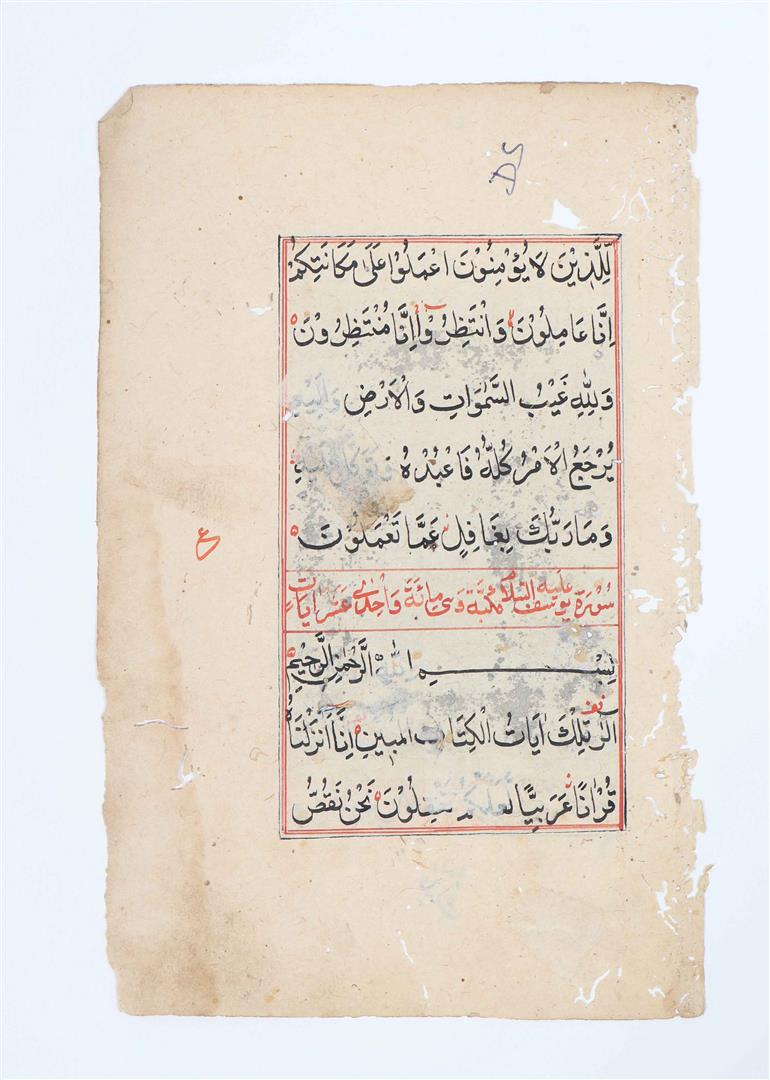 DS
لِّلَّذِيْنَ لَا يُؤْمِنُوْنَ اعْمَلُوْا عَلٰى مَكَانَتِكُمْ
اِنَّا عَامِلُوْنَ وَانْتَظِرُوْا اِنَّا مُنْتَظِرُوْنَ
وَلِلّٰهِ غَيْبُ السَّمٰوَاتِ وَالْاَرْضِ وَاِلَيْهِ
يُرْجَعُ الْاَمْرُ كُلُّهٗ فَاعْبُدْهُ وَتَوَكَّلْ عَلَيْهِ
وَمَا رَبُّكَ بِغَافِلٍ عَمَّا تَعْمَلُوْنَ
ع
سورة يوسف عليه السلام مكية وهى مائة واحدى عشر ايات
بِسْمِ اللّٰهِ الرَّحْمٰنِ الرَّحِيْمِ
الٓرٰ تِلْكَ اٰيَاتُ الْكِتَابِ الْمُبِيْنِ اِنَّا اَنْزَلْنَاهُ
قُرْاٰنًا عَرَبِيًّا لَعَلَّكُمْ تَعْقِلُوْنَ نَحْنُ نَقُصُّ